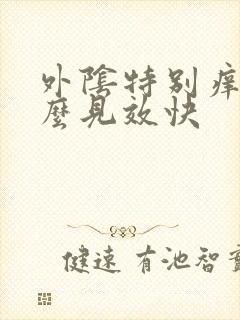 外陰特别痒
麼見效快
健速 有池智